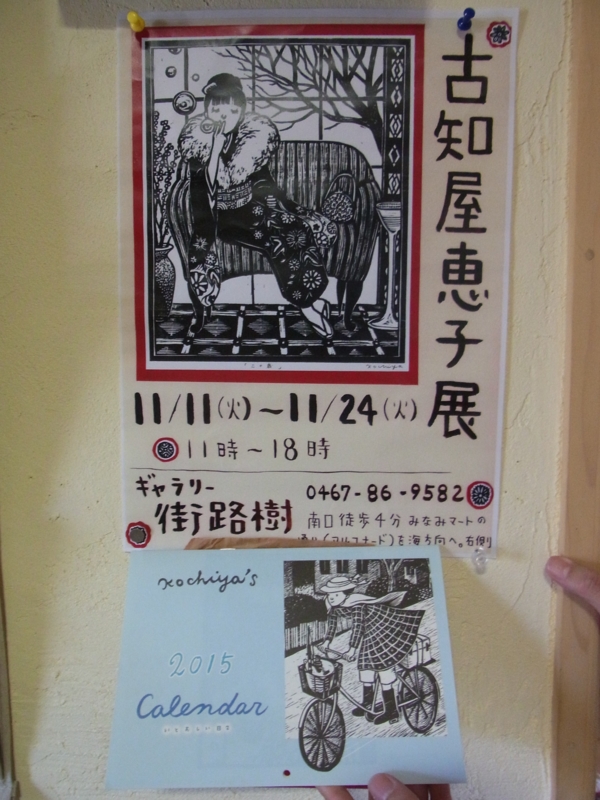 古知屋恵子展
11/11(火)～11/24(火)
11時～18時
ギャラリー
街路樹
0467-86-9582
南口徒歩4分 みなみマートの
通り(ラルフナード)を海方向へ。右側
kochiya's
2015
Calendar